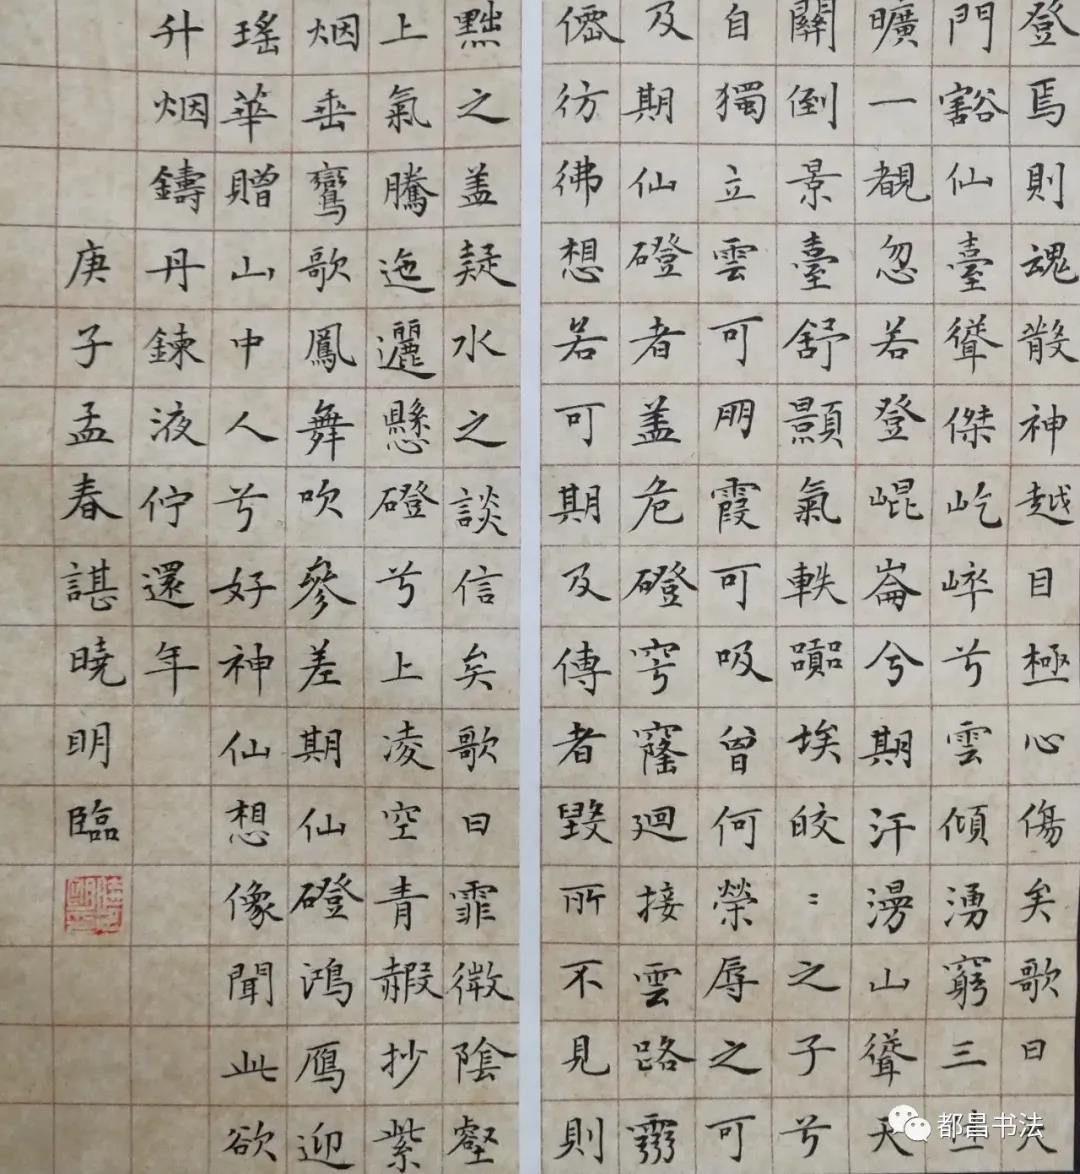 登焉則魂散神越目極心傷矣歌曰天
門豁仙臺聳傑屹崒兮雲傾湧窮三
曠一覩忽若登崐崙兮期汗漫山聳天
關倒景臺舒顥氣軼埃皎:之子兮
自獨立雲可朋霞可吸曾何榮辱之可
及期仙磴者盖危磴穹窿迴接雲路
僊彷彿想若可期及傳者毀所不見則
黜之盖疑水之談信矣歌曰霏微陰壑
上氣騰迤邐懸磴兮上凌空青赮抄紫
烟垂鸞歌鳳舞吹參差期仙磴鴻鴈迎
瑤華贈山中人兮好神仙想像聞此欲
升烟鑄丹鍊液佇還年
庚子孟春諶曉明臨
都昌书法